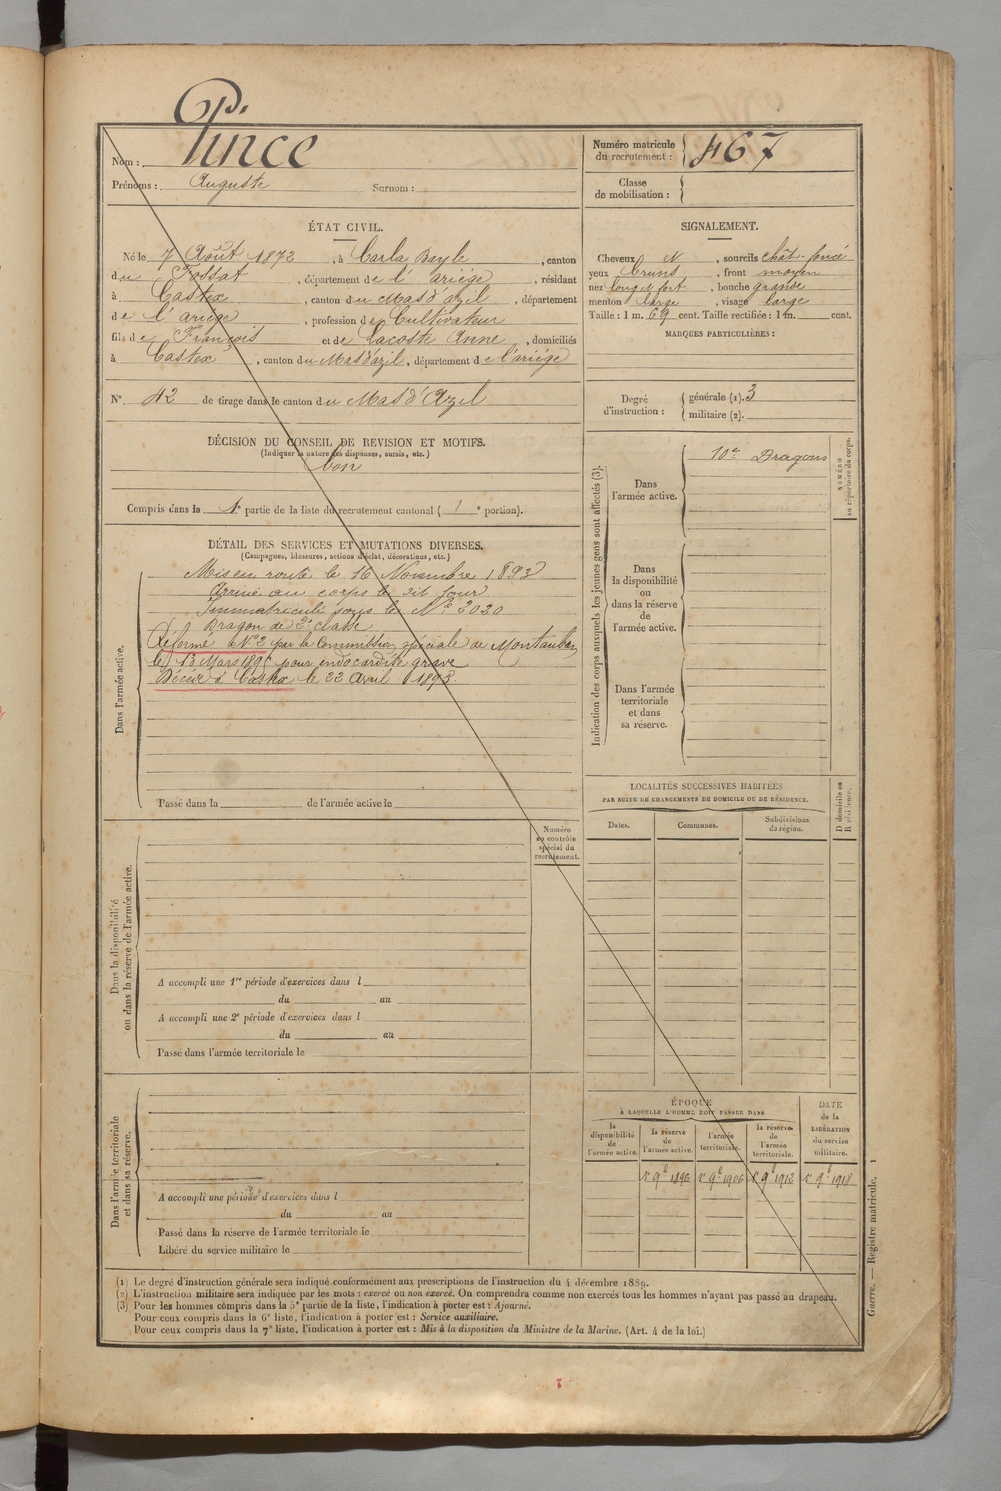 Nom : Pince
Prénoms : Auguste Surnom :
Numéro matricule du recrutement : 467
Classe de mobilisation :
ÉTAT CIVIL.
Né le 7 Août 1872, à Carla Bayle, canton
du Fossat, département de l'ariège, résidant
à Castex, canton du Mas d'azil, département
de l'ariège, profession de Cultivateur
fils de François et de Lacoste Anne, domiciliés
à Castex, canton du Mas d'azil, département de l'ariège
N° 42 de tirage dans le canton du Mas d'Azil
SIGNALEMENT.
Cheveux N, sourcils chât. foncé
yeux bruns, front moyen
nez long et fort, bouche grande
menton large, visage large
Taille : 1 m. 69 cent. Taille rectifiée : 1 m. cent.
MARQUES PARTICULIÈRES :
Degré d'instruction : générale (1). 3
militaire (2).
DÉCISION DU CONSEIL DE REVISION ET MOTIFS.
(Indiquer la nature des dispenses, sursis, etc.)
bon
Compris dans la 1e partie de la liste du recrutement cantonal ( 1 e portion).
DÉTAIL DES SERVICES ET MUTATIONS DIVERSES.
(Campagnes, blessures, actions d'éclat, décorations, etc.)
Dans l'armée active.
Mis en route le 16 Novembre 1893
Arrivé au corps le dit jour
Immatriculé sous le N° 2020
Dragon de 2e classe
Réformé N° 2 par la Commission spéciale de Montauban
le 13 Mars 189 pour endocardite grave
Décédé à Castex le 22 Avril 1895.
Passé dans la de l'armée active le
Indication des corps auxquels les jeunes gens sont affectés (3).
Dans l'armée active. 10e Dragons
Dans la disponibilité ou dans la réserve de l'armée active.
Dans l'armée territoriale et dans sa réserve.
NUMÉRO au répertoire du corps.
LOCALITÉS SUCCESSIVES HABITÉES
PAR SUITE DE CHANGEMENTS DE DOMICILE OU DE RÉSIDENCE.
Dates. Communes. Subdivisions de région.
D domicile ou R résidence.
Numéro au contrôle spécial du recrutement.
Dans la disponibilité ou dans la réserve de l'armée active.
A accompli une 1re période d'exercices dans l
du au
A accompli une 2e période d'exercices dans l
du au
Passé dans l'armée territoriale le
Dans l'armée territoriale et dans sa réserve.
A accompli une période d'exercices dans l
du au
Passé dans la réserve de l'armée territoriale le
Libéré du service militaire le
ÉPOQUE
À LAQUELLE L'HOMME DOIT PASSER DANS
la disponibilité de l'armée active.
la réserve de l'armée active.
l'armée territoriale.
la réserve de l'armée territoriale.
DATE de la LIBÉRATION du service militaire.
1r 9e 1896 1r 9e 1906 1r 9e 1912 1r 9e 1918
(1) Le degré d'instruction générale sera indiqué conformément aux prescriptions de l'instruction du 4 décembre 1889.
(2) L'instruction militaire sera indiquée par les mots : exercé ou non exercé. On comprendra comme non exercés tous les hommes n'ayant pas passé au drapeau.
(3) Pour les hommes compris dans la 5e partie de la liste, l'indication à porter est : Ajourné.
Pour ceux compris dans la 6e liste, l'indication à porter est : Service auxiliaire.
Pour ceux compris dans la 7e liste, l'indication à porter est : Mis à la disposition du Ministre de la Marine. (Art. 4 de la loi.)
Guerre. — Registre matricule. 1